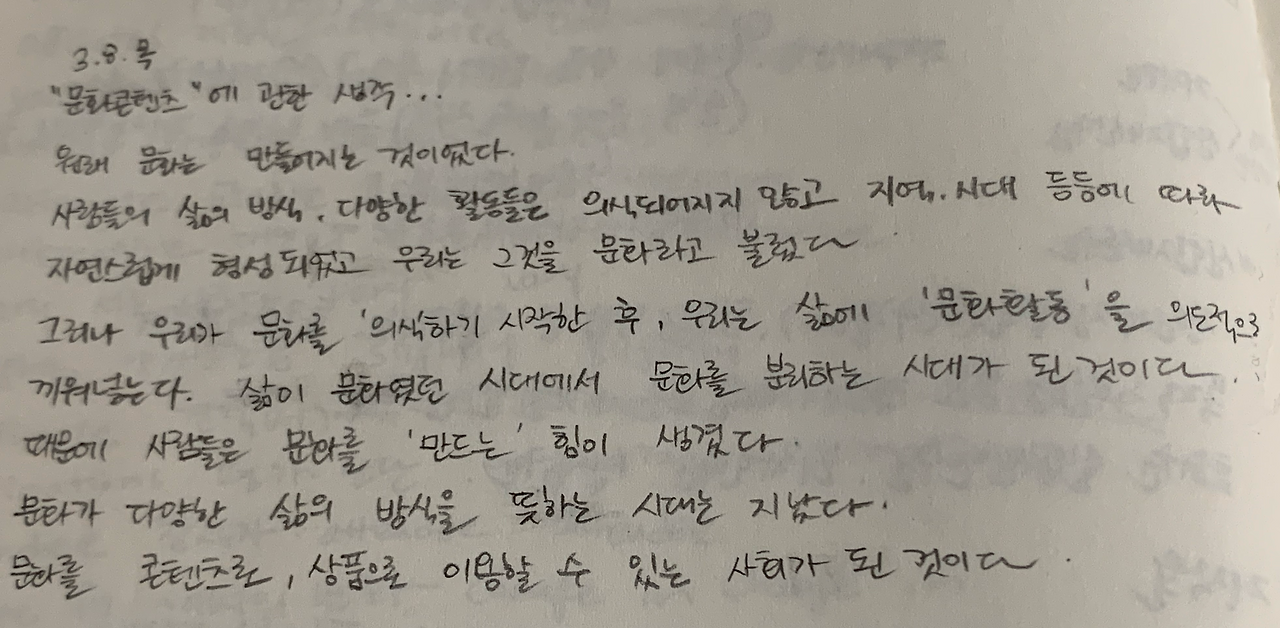 3.8.목
"문화콘텐츠"에 관한 생각...
원래 문화는 만들어지는 것이었다.
사람들의 삶의 방식, 다양한 활동들은 의식되어지지 않고 지역, 시대 등등에 따라
자연스럽게 형성되었고 우리는 그것을 문화라고 불렀다
그러나 우리가 문화를 '의식'하기 시작한 후, 우리는 삶에 '문화활동'을 의도적으로
끼워넣는다. 삶이 문화였던 시대에서 문화를 분리하는 시대가 된 것이다.
때문에 사람들은 문화를 '만드는' 힘이 생겼다.
문화가 다양한 삶의 방식을 뜻하는 시대는 지났다.
문화를 콘텐츠로, 상품으로 이용할 수 있는 사회가 된 것이다.